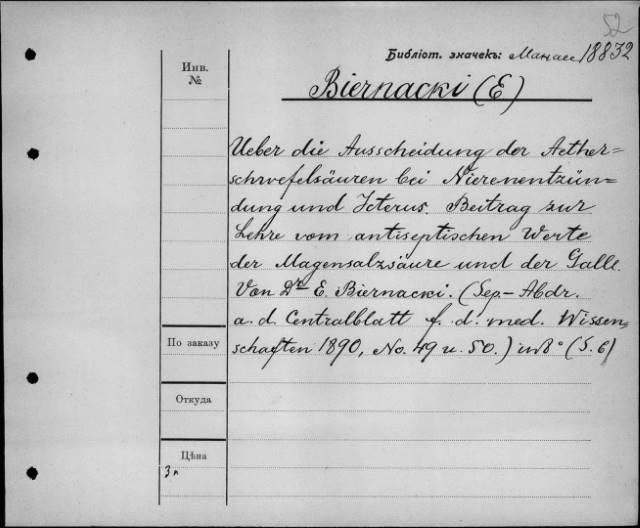 52
Библіот. значекъ: Манас 18832
Инв.
№
Biernacki (E)
Ueber die Ausscheidung der Aether=
schwefelsäuren bei Nierenentzün=
dung und Icterus. Beitrag zur
Lehre vom antiseptischen Werte
der Magensalzsäure und der Galle.
Von Dr E. Biernacki. (Sep.-Abdr.
a. d. Centralblatt f. d. med. Wissen
schaften 1890, No. 49 u. 50.) in 8° (S. 6)
По заказу
Откуда
Цѣна
3к